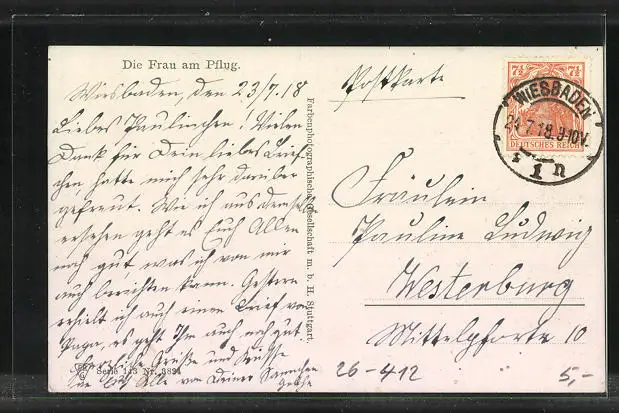 Die Frau am Pflug.
Wiesbaden, den 23/7.18
Liebes Paulinchen! Vielen
Dank für Dein liebes Brief-
chen, hatte mich sehr darüber
gefreut. Wie ich aus demselb.
ersehen geht es Euch Allen
noch gut was ich von mir
auch berichten kann. Gestern
erhielt ich auch einen Brief von
Papa, es geht Ihm auch noch gut
Herzliche Grüße und Küsse
für Euch Alle von Deiner
Serie 113 Nr. 3824
Farbenphotographische Gesellschaft m. b. H. Stuttgart.
Postkarte
7½ 7½
DEUTSCHES REICH
WIESBADEN
24.7.18.9-10V.
* 1 n
Fräulein
Pauline Ludwig
Westerburg
Mittelpforte 10
26-412
5,-